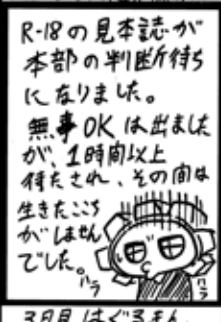 R-18の見本誌が
本部の判断待ち
になりました。
無事OKは出ました
が、1時間以上
待たされ、その間は
生きたここち
がしません
でした。
ハラ
ハラ
3日目はぐるまん